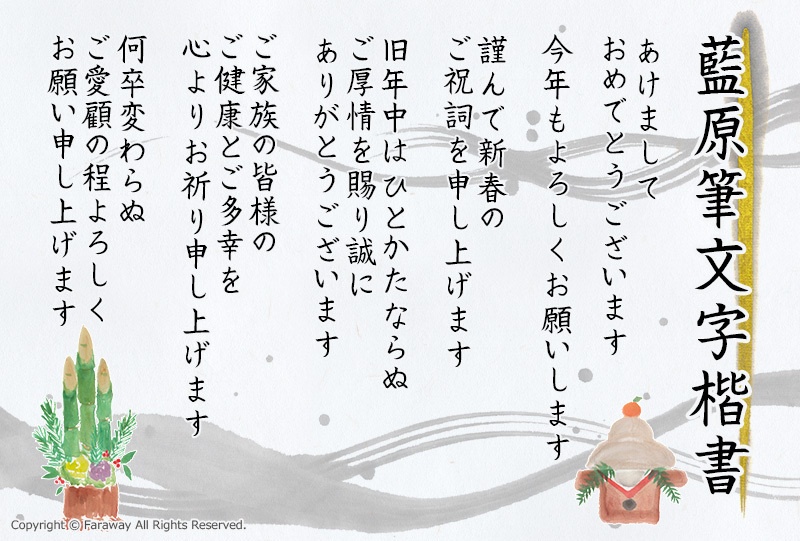 藍原筆文字楷書
あけまして
おめでとうございます
今年もよろしくお願いします
謹んで新春の
ご祝詞を申し上げます
旧年中はひとかたならぬ
ご厚情を賜り誠に
ありがとうございます
ご家族の皆様の
ご健康とご多幸を
心よりお祈り申し上げます
何卒変わらぬ
ご愛顧の程よろしく
お願い申し上げます
Copyright © Faraway All Rights Reserved.